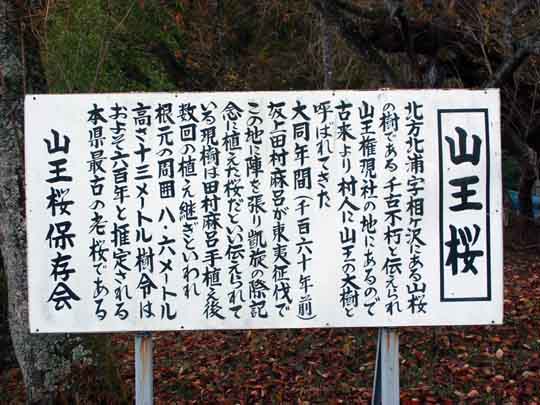 山王桜
北方北浦字相ヶ沢にある山桜
の樹である千古不朽と伝えられ
山王権現社の地にあるので
古来より村人に山王の大樹と
呼ばれてきた
大同年間(千百六十年前)
坂上田村麻呂が東夷征伐で
この地に陣を張り凱旋の際記
念に植えた桜だといい伝えられて
いる現樹は田村麻呂手植え後
数回の植え継ぎといわれ
根元の周囲八・六メートル
高さ十三メートル樹令は
およそ六百年と推定される
本県最古の老桜である
山王桜保存会